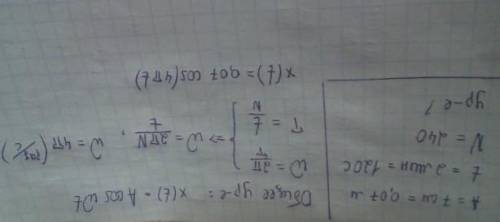 A = 7 см = 0,07 м
t = 2 мин = 120 с
N = 240
ур-е ?
Общее ур-е: x(t) = A cos ωt
ω = 2π/T
T = t/N
=> ω = 2πN/t, ω = 4π (рад/с)
x(t) = 0,07 cos(4πt)